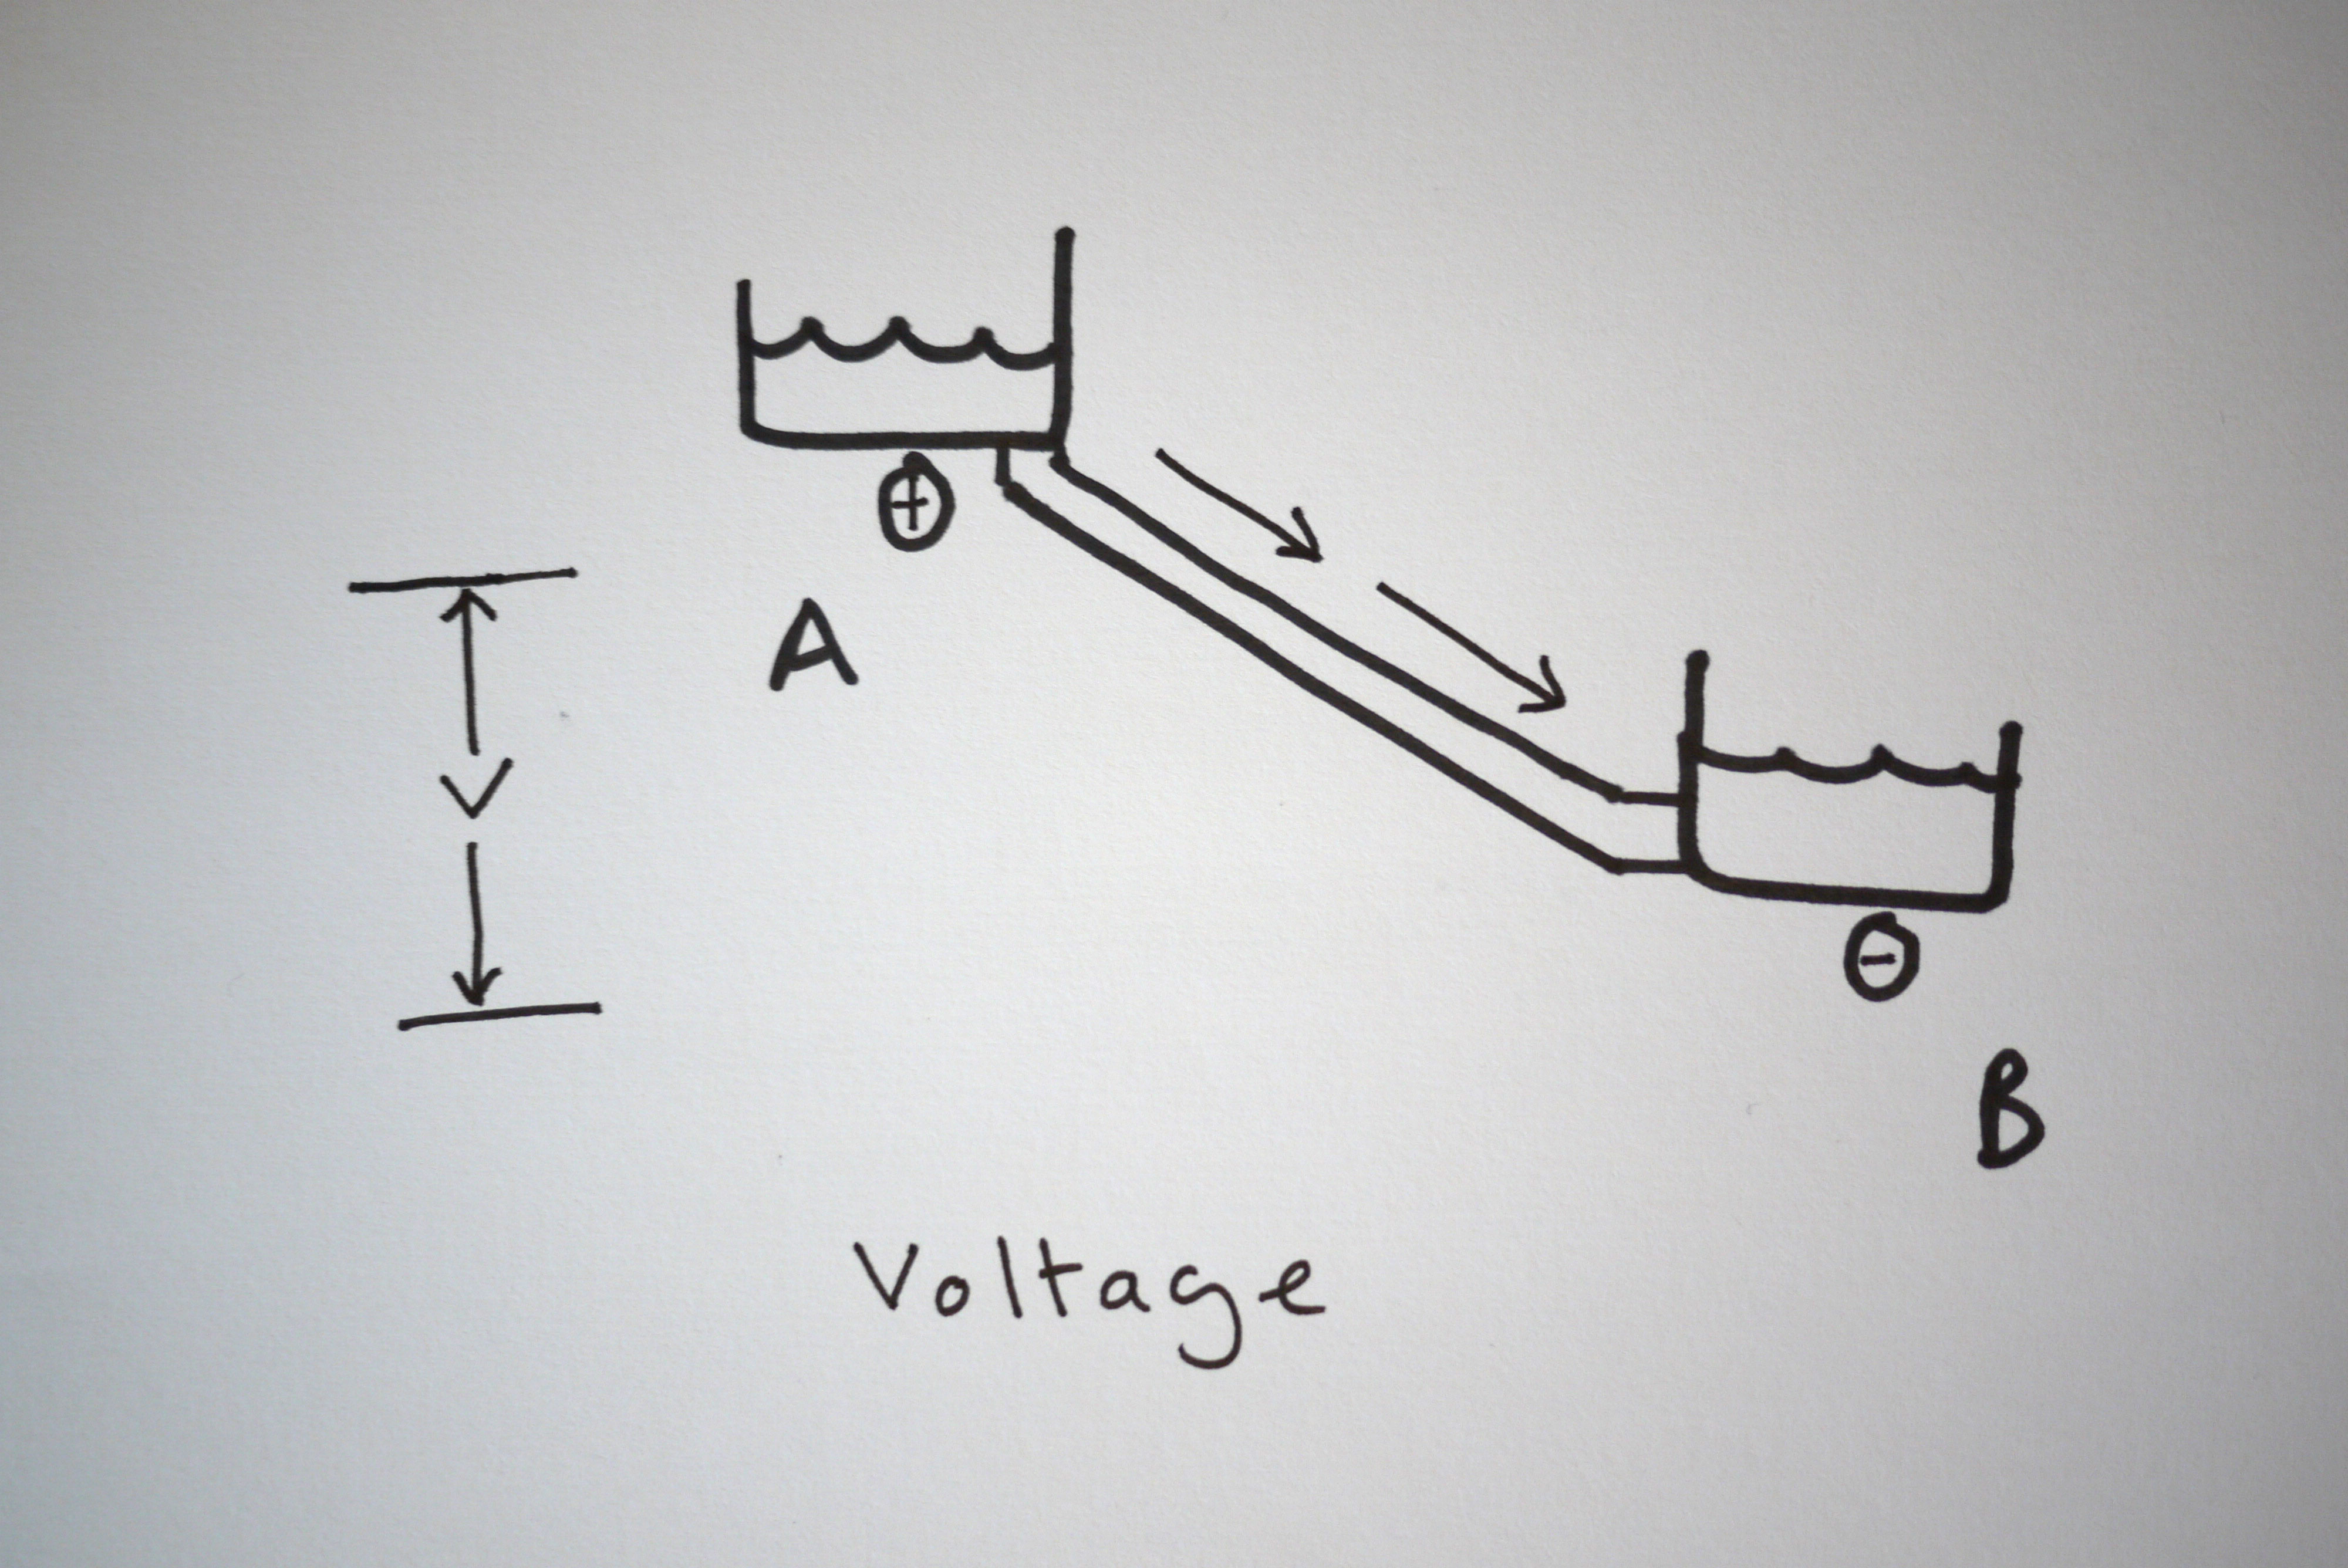 +
A
V
-
B
Voltage